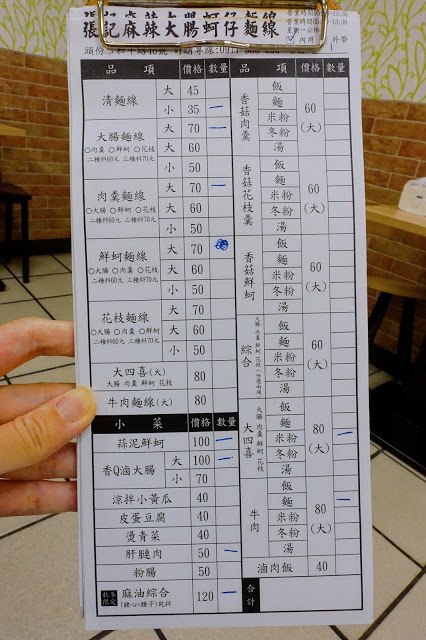 張記麻辣大腸蚵仔麵線
張記麻辣大腸蚵仔麵線
內用 外帶
品項 價格 數量
清麵線 大 45
小 35
大腸麵線 大 70
○肉羹 ○鮮蚵 ○花枝 大 60
二種料60元 三種料70元 小 50
肉羹麵線 大 70
○大腸 ○鮮蚵 ○花枝 大 60
二種料60元 三種料70元 小 50
鮮蚵麵線 大 70
○大腸 ○肉羹 ○花枝 大 60
二種料60元 三種料70元 小 50
花枝麵線 大 70
○大腸 ○肉羹 ○鮮蚵 大 60
二種料60元 三種料70元 小 50
大四喜(大) 80
大腸 肉羹 鮮蚵 花枝
牛肉麵線(大) 80
小菜 價格 數量
蒜泥鮮蚵 100
香Q滷大腸 大 100
小 70
涼拌小黃瓜 40
皮蛋豆腐 40
燙青菜 40
肝腱肉 50
粉腸 50
秋冬限定 麻油綜合 120
(豬心+腰子)乾拌
品項 價格 數量
香菇肉羹 飯 60(大)
麵
米粉
冬粉
湯
香菇花枝羹 飯 60(大)
麵
米粉
冬粉
湯
香菇鮮蚵 飯 60(大)
麵
米粉
冬粉
湯
綜合 大腸 肉羹 鮮蚵 花枝 飯 60(大)
麵
米粉
冬粉
湯
大四喜 大腸 肉羹 鮮蚵 花枝 飯 80(大)
麵
米粉
冬粉
湯
牛肉 飯 80(大)
麵
米粉
冬粉
湯
滷肉飯 40
合計